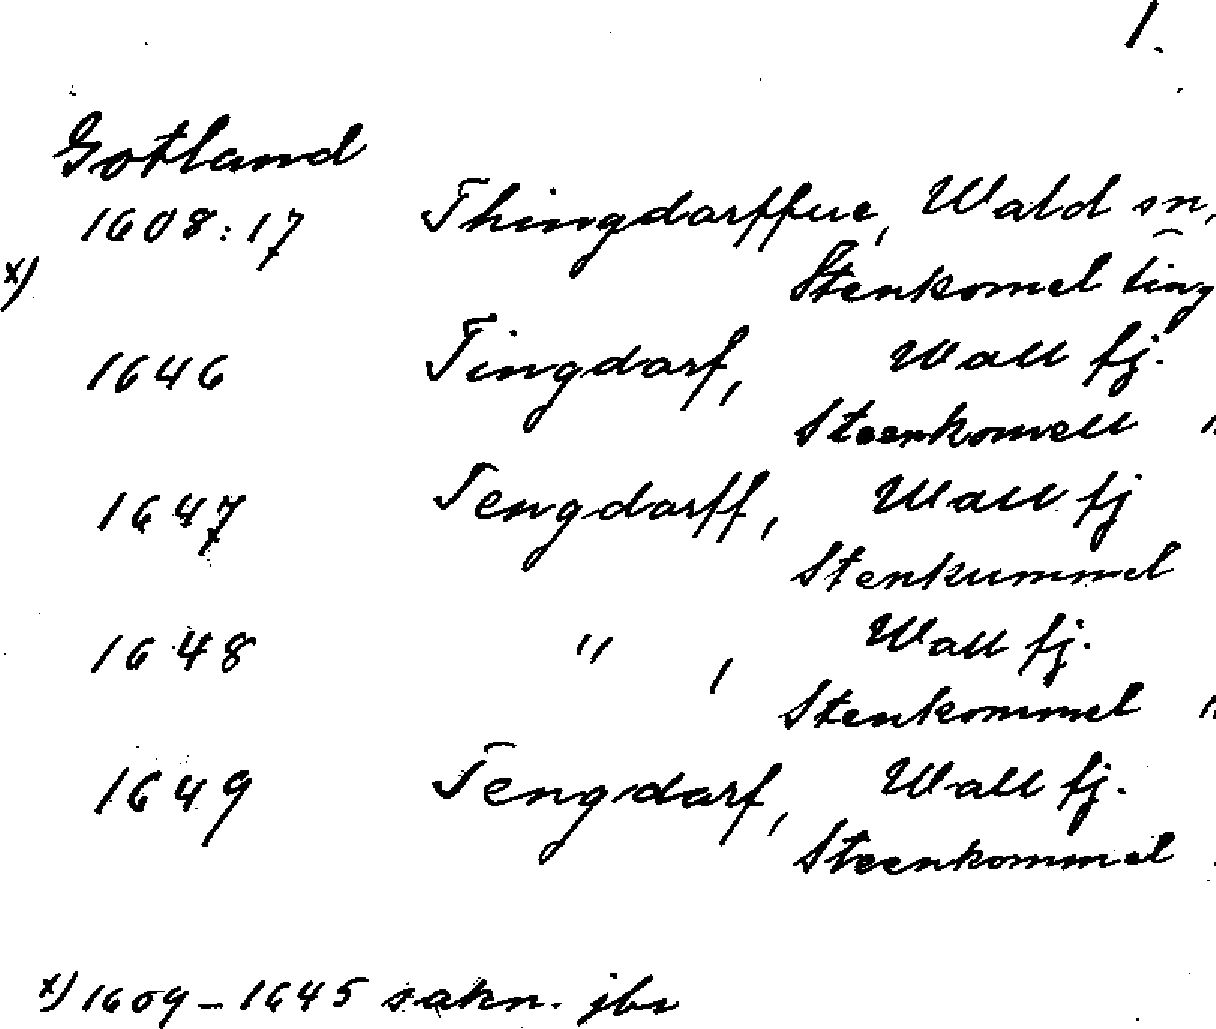 1.
Gotland
1608:17 Thingdarffue, Wald sn,
x) Stenkomel ting
1646 Tingdarf, Wall fj.
Steenkomell
1647 Tengdarff, Wall fj
Stenkummel
1648 " , Wall fj.
Stenkommel
1649 Tengdarf, Wall fj.
Steenkommel
x) 1609-1645 sakn. jbr